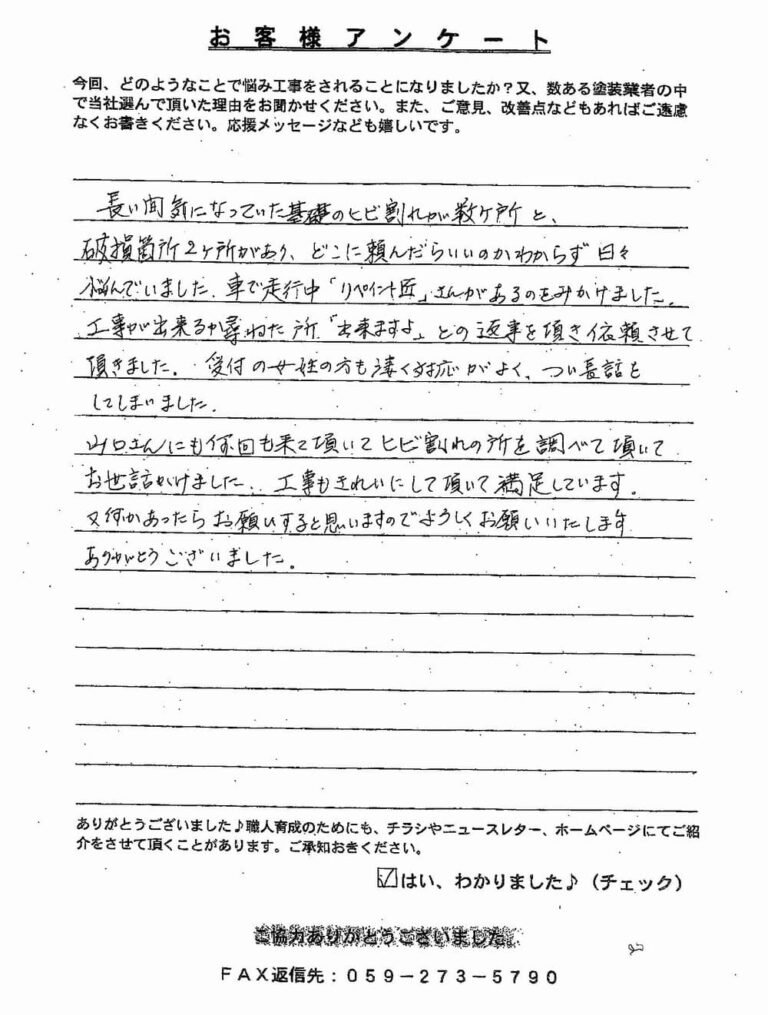 お客様アンケート
今回、どのようなことで悩み工事をされることになりましたか？又、数ある塗装業者の中
で当社選んで頂いた理由をお聞かせください。また、ご意見、改善点などもあればご遠慮
なくお書きください。応援メッセージなども嬉しいです。
長い間気になっていた基礎のヒビ割れが数ヶ所と、
破損箇所2ヶ所があり、どこに頼んだらいいのかわからず日々
悩んでいました。車で走行中「リペイント匠」さんがあるのをみかけました。
工事が出来るか尋ねた所「出来ますよ」との返事を頂き依頼させて
頂きました。受付の女性の方も凄く対応がよく、つい長話を
してしまいました。
山口さんにも何回も来て頂いてヒビ割れの所を調べて頂いて
お世話かけました。工事もきれいにして頂いて満足しています。
又何かあったらお願いすると思いますのでよろしくお願いいたします
ありがとうございました。
ありがとうございました♪職人育成のためにも、チラシやニュースレター、ホームページにてご紹
介をさせて頂くことがあります。ご承知おきください。
☑はい、わかりました♪（チェック）
ご協力ありがとうございました。
ＦＡＸ返信先：０５９－２７３－５７９０